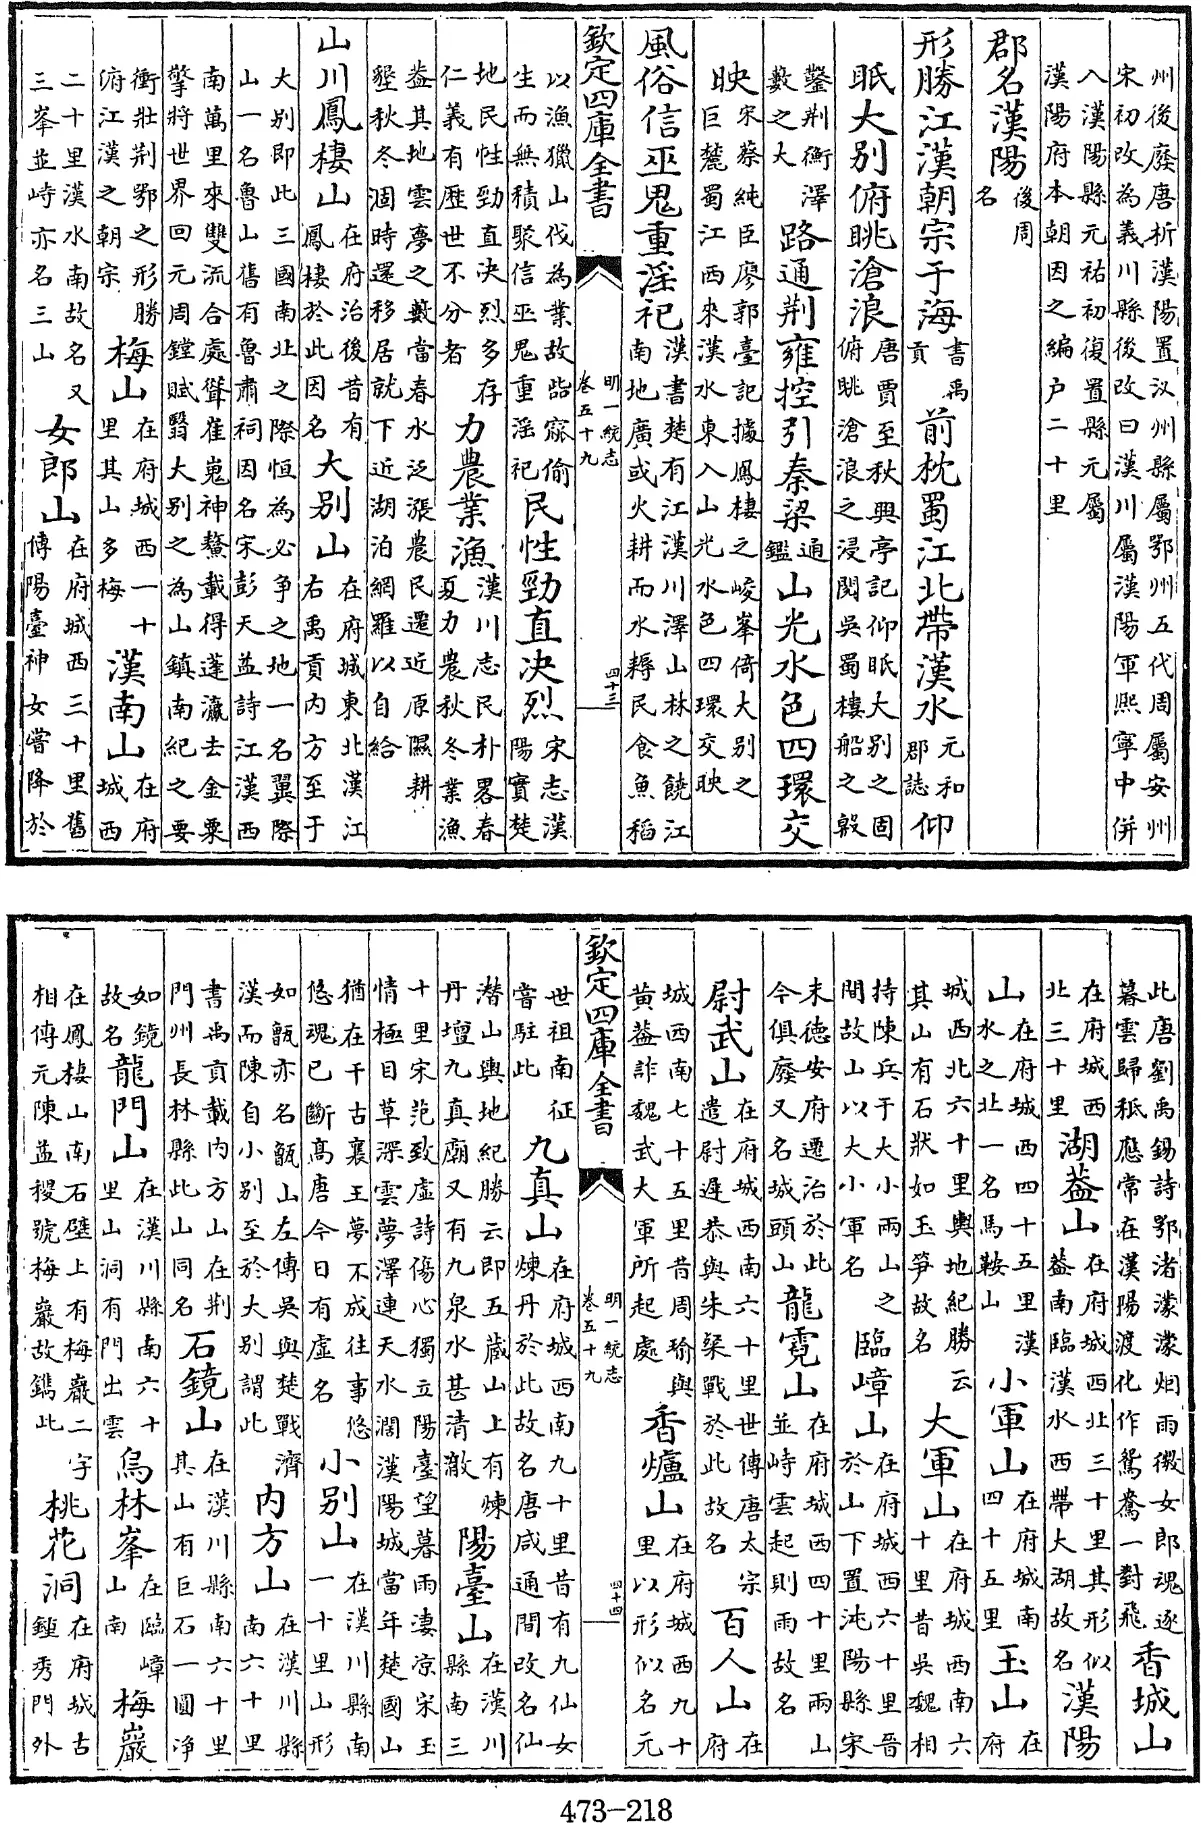 州後廢唐析漢陽置汊州縣屬鄂州五代周屬安州
宋初改為義川縣後改曰漢川屬漢陽軍熙寧中併
入漢陽縣元祐初復置縣元屬
漢陽府本朝因之編户二十里
郡名漢陽後周名
形勝江漢朝宗于海書禹貢前枕蜀江北帶漢水元和郡誌仰
眂大别俯眺滄浪唐賈至秋興亭記仰眂大别之固俯眺滄浪之浸閱吳蜀樓船之殷
鑿荆衡澤藪之大路通荆雍控引秦梁通鑑山光水色四環交
映宋蔡純臣廖郭臺記據鳳棲之峻峯倚大别之巨麓蜀江西來漢水東入山光水色四環交映
風俗信巫鬼重淫祀漢書楚有江漢川澤山林之饒江南地廣或火耕而水耨民食魚稻
欽定四庫全書 明一統志 卷五十九 四十三
以漁獵山伐為業故呰窳偷生而無積聚信巫鬼重淫祀民性勁直决烈宋志漢陽實楚
地民性勁直决烈多存仁義有歴世不分者力農業漁漢川志民朴畧春夏力農秋冬業漁
葢其地雲夢之藪當春水泛漲農民遷近原隰耕
墾秋冬涸時還移居就下近湖泊網羅以自給
山川鳳棲山在府治後昔有鳳棲於此因名大别山在府城東北漢江右禹貢内方至于
大别即此三國南北之際恒為必争之地一名翼際
山一名魯山舊有魯肅祠因名宋彭天益詩江漢西
南萬里來雙流合處聳崔嵬神鰲載得蓬瀛去金粟
擎將世界回元周鏜賦翳大别之為山鎮南紀之要
衝壯荆鄂之形勝俯江漢之朝宗梅山在府城西一十里其山多梅漢南山在府城西
二十里漢水南故名又三峯並峙亦名三山女郎山在府城西三十里舊傳陽臺神女嘗降於
此唐劉禹錫詩鄂渚濛濛烟雨微女郎魂逐暮雲歸秪應常在漢陽渡化作鴛鴦一對飛香城山
在府城西北三十里湖葢山在府城西北三十里其形似葢南臨漢水西帶大湖故名漢陽
山在府城西四十五里漢水之北一名馬鞍山小軍山在府城南四十五里玉山在府
城西北六十里輿地紀勝云其山有石狀如玉笋故名大軍山在府城西南六十里昔吳魏相
持陳兵于大小兩山之間故山以大小軍名臨嶂山在府城西六十里晉於山下置沌陽縣宋
末德安府遷治於此今俱廢又名城頭山龍霓山在府城西四十里兩山並峙雲起則雨故名
尉武山在府城西南六十里世傳唐太宗遣尉遲恭與朱粲戰於此故名百人山在府
城西南七十五里昔周瑜與黃葢詐魏武大軍所起處香爐山在府城西九十里以形似名元
欽定四庫全書 明一統志 卷五十九 四十四
世祖南征嘗駐此九真山在府城西南九十里昔有九仙女煉丹於此故名唐咸通間改名仙
潜山輿地紀勝云即五藏山上有煉丹壇九真廟又有九泉水甚清澈陽臺山在漢川縣南三
十里宋范致虛詩傷心獨立陽臺望暮雨凄凉宋玉
情極目草深雲夢澤連天水濶漢陽城當年楚國山
猶在千古襄王夢不成往事悠悠魂已斷高唐今日有虛名小别山在漢川縣南一十里山形
如甑亦名甑山左傳吳與楚戰濟漢而陳自小别至於大别謂此内方山在漢川縣南六十里
書禹貢載内方山在荆門州長林縣此山同名石鏡山在漢川縣南六十里其山有巨石一圓净
如鏡故名龍門山在漢川縣南六十里山洞有門出雲烏林峯在臨嶂山南梅巖
在鳳棲山南石壁上有梅巖二字相傳元陳益稷號梅巖故鐫此桃花洞在府城古鍾秀門外
473-218